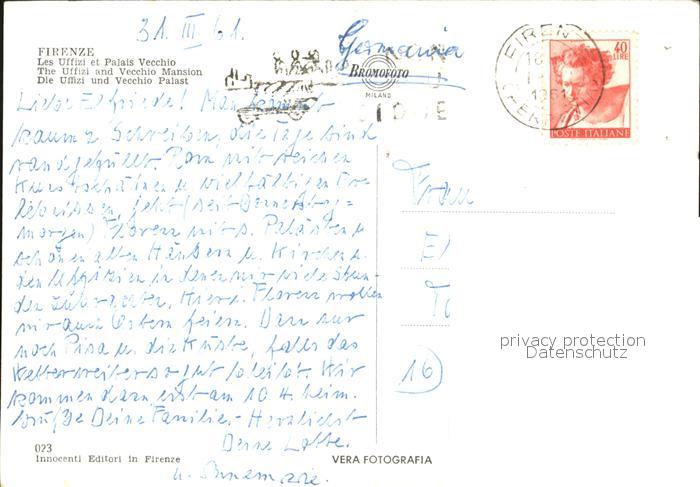 31. III 61.
FIRENZE
Les Uffizi et Palais Vecchio
The Uffizi and Vecchio Mansion
Die Uffizi und Vecchio Palast
Germania
BROMOFOTO
MILANO
40
LIRE
1961
POSTE ITALIANE
Liebe Elfriede! Man kommt
kaum z. Schreiben, die Tage sind
randgefüllt. Rom mit reichen
Kunstschätzen u. vielfältigen Er-
lebnissen, jetzt (seit Donnerstag-
morgen) Florenz mit s. Palästen u.
schönen alten Häusern u. Kirchen u.
den Uffizien in denen wir viele Stun-
den zubrachten. Hier i. Florenz wollen
wir auch Ostern feiern. Dann nur
noch Pisa u. die Küste, falls das
Wetter weiter so gut bleibt. Wir
kommen dann erst am 10.4. heim.
Grüße Deine Familie. Herzlichst
Deine Lotte.
u. Annemarie.
Frau
El
To
16
privacy protection
Datenschutz
023
Innocenti Editori in Firenze
VERA FOTOGRAFIA